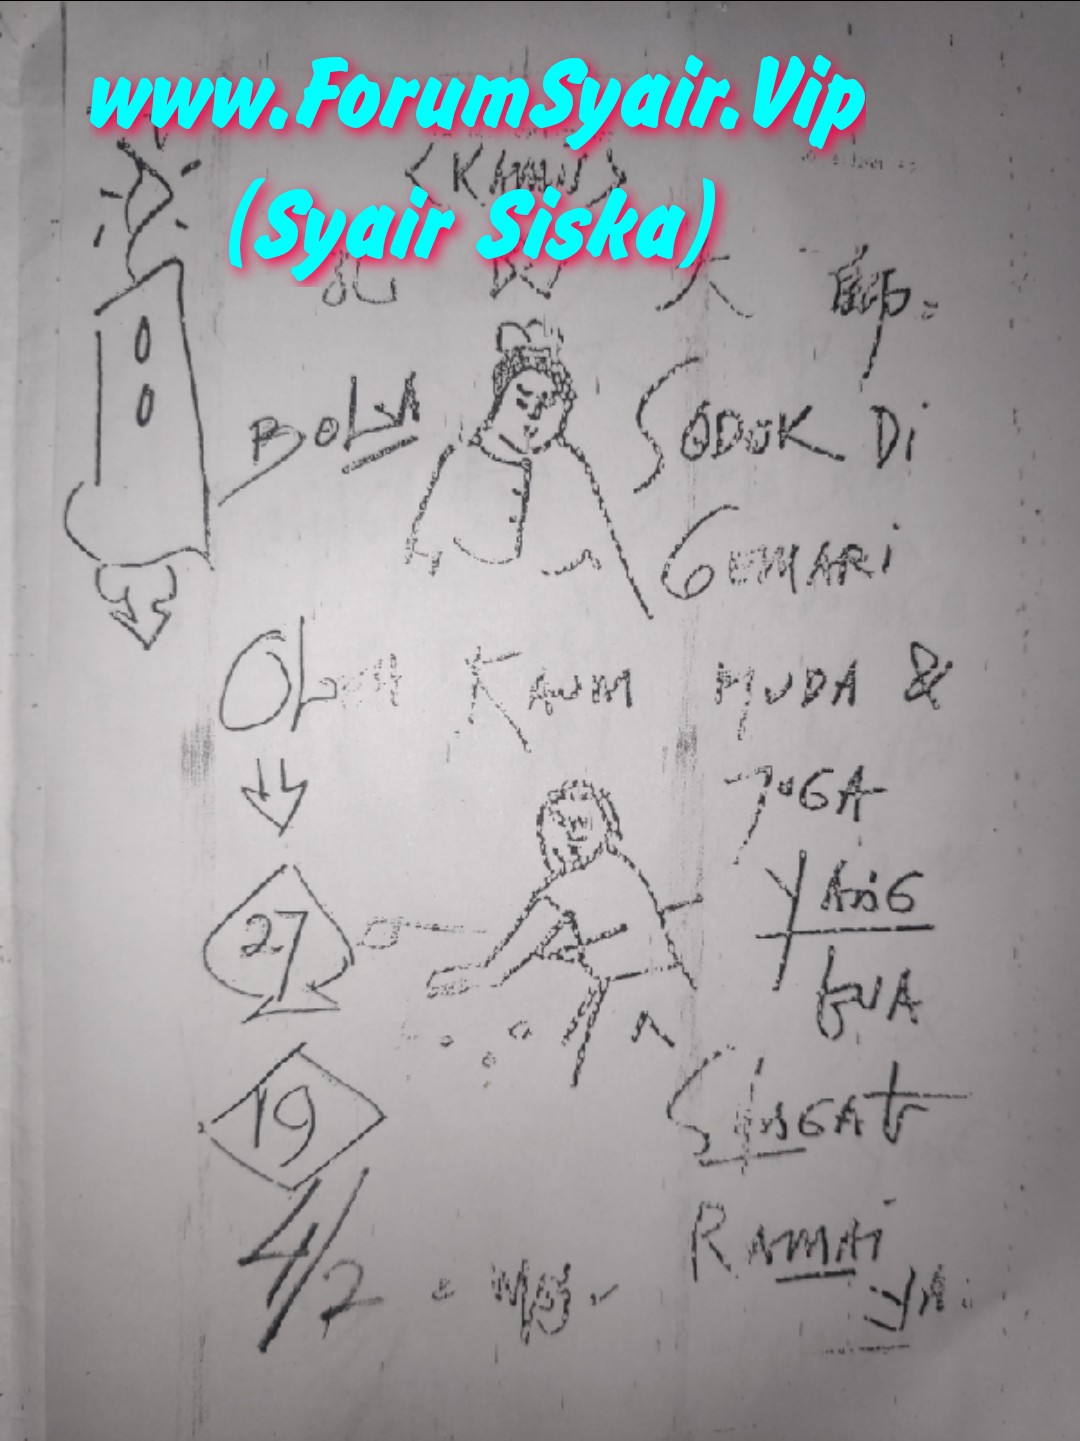 www.ForumSyair.Vip
<KAMIS>
(Syair Siska)
大 師
BOLA SODOK Di
GEMARi
OLEH KAUM MUDA &
JUGA
YANG
27
tUA
19
SANGAt
RAMAi
4/2
YA.